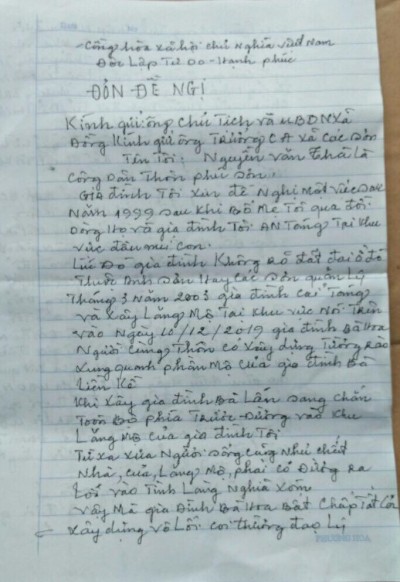 Cộng hòa xã hội chủ Nghĩa việt Nam
Độc Lập Tự Do - Hạnh phúc
ĐƠN ĐỀ NGHỊ
Kính gửi ông Chủ Tịch và UBND Xã
Đồng Kính gửi ông Trưởng C A Xã Các Sơn
Tên Tôi: Nguyễn văn Thá Là
Công Dân Thôn phú Sơn.
Gia đình Tôi xin đề Nghị Một việc sau
Năm 1999 sau khi Bố Mẹ Tôi qua đời
Dòng Họ và gia đình Tôi AN Táng Tại Khu
vực đầu núi Con.
Lúc Đó gia đình Không Rõ đất đai ở đó
Thuộc Anh Sơn Hay Các Sơn quản Lý
Tháng 3 Năm 2003 gia đình Cải Táng
và Xây Lăng Mộ Tại Khu vực Nói Trên
vào Ngày 10/12/2019 gia đình Bà Hoa
Người Cùng Thôn Có Xây dựng Tường Rào
Xung quanh phần Mộ Của gia đình Bà
Liền Kề
Khi Xây gia đình Bà Lấn sang chắn
Toàn Bộ phía Trước Đường vào Khu
Lăng Mộ Của gia đình Tôi
Từ xa xưa Người Sống Cũng Như chết
Nhà, Cửa, Lăng Mộ, phải có Đường Ra
Lối vào Tình Làng Nghĩa Xóm
Vậy Mà gia Đình Bà Hoa Bất Chấp Tất Cả
Xây dựng vô Lối coi thường đạo Lý
PHƯƠNG HOA